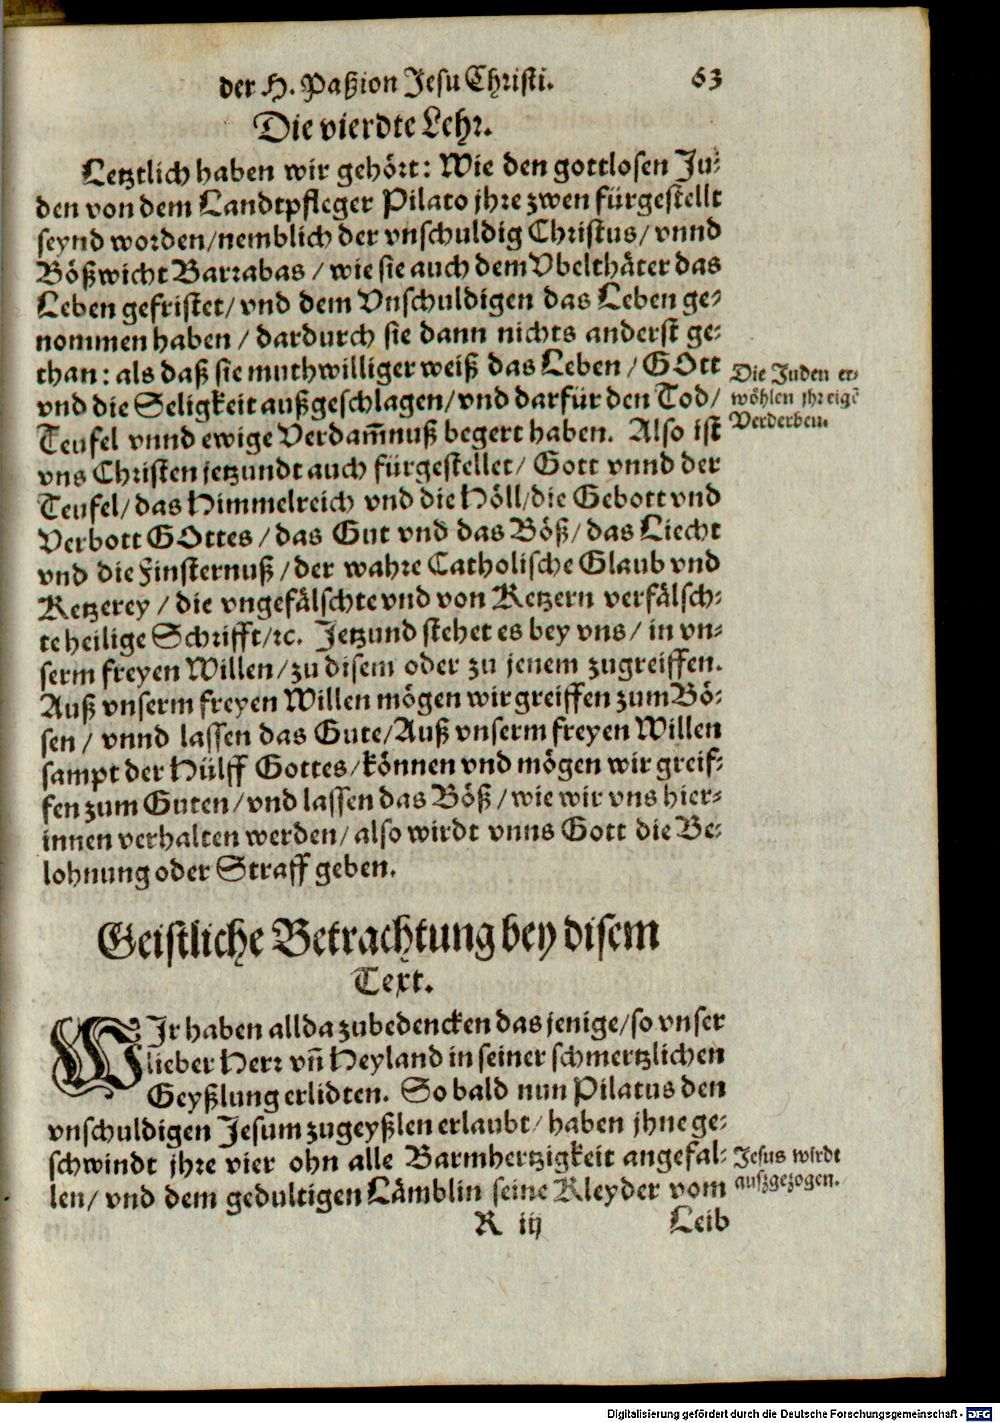 der H. Paßion Jesu Christi. 63
Die vierdte Lehr.
Letztlich haben wir gehört: Wie den gottlosen Ju-
den von dem Landtpfleger Pilato jhre zwen fürgestellt
seynd worden/nemblich der vnschuldig Christus/ vnnd
Bößwicht Barrabas / wie sie auch dem Vbelthäter das
Leben gefristet/ vnd dem Vnschuldigen das Leben ge-
nommen haben / dardurch sie dann nichts anderst ge-
than: als daß sie muthwilliger weiß das Leben / GOtt
vnd die Seligkeit außgeschlagen/vnd darfür den Tod/
Teufel vnnd ewige Verdam̃nuß begert haben. Also ist
vns Christen jetzundt auch fürgestellet/ Gott vnnd der
Teufel/ das Himmelreich vnd die Höll/die Gebott vnd
Verbott GOttes / das Gut vnd das Böß/ das Liecht
vnd die Finsternuß / der wahre Catholische Glaub vnd
Ketzerey / die vngefälschte vnd von Ketzern verfälsch-
te heilige Schrifft/ꝛc. Jetzund stehet es bey vns/ in vn-
serm freyen Willen/ zu disem oder zu jenem zugreiffen.
Auß vnserm freyen Willen mögen wir greiffen zum Bö-
sen / vnnd lassen das Gute/Auß vnserm freyen Willen
sampt der Hülff Gottes/können vnd mögen wir greif-
fen zum Guten/vnd lassen das Böß/ wie wir vns hier-
innen verhalten werden/ also wirdt vnns Gott die Be-
lohnung oder Straff geben.
Die Juden er-
wöhlen jhr eigẽ
Verderben.
Geistliche Betrachtung bey disem
Text.
WIr haben allda zubedencken das jenige/so vnser
lieber Herr vñ Heyland in seiner schmertzlichen
Geyßlung erlidten. So bald nun Pilatus den
vnschuldigen Jesum zugeyßlen erlaubt/ haben jhne ge-
schwindt jhre vier ohn alle Barmhertzigkeit angefal-
len/ vnd dem gedultigen Lämblin seine Kleyder vom
Jesus wirdt
außgezogen.
K iij Leib
Digitalisierung gefördert durch die Deutsche Forschungsgemeinschaft - DFG